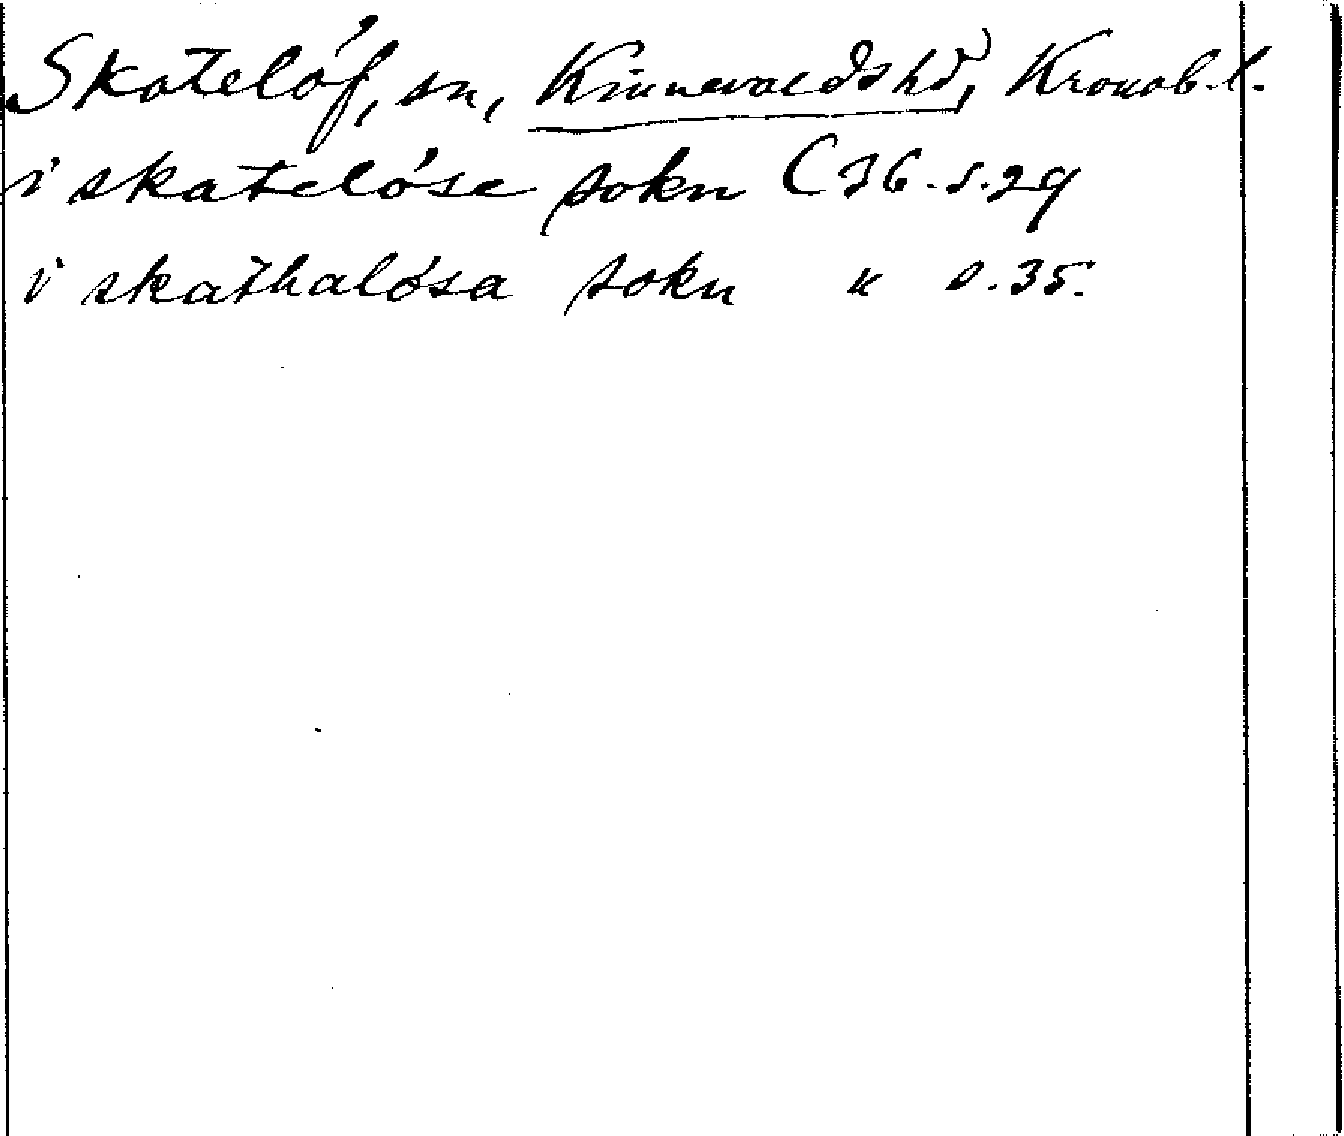 Skatelöf, sn, Kinnevalds hd, Kronob. l.
i skatelöse sokn C 36. s. 29
i skathalösa sokn " s. 35.